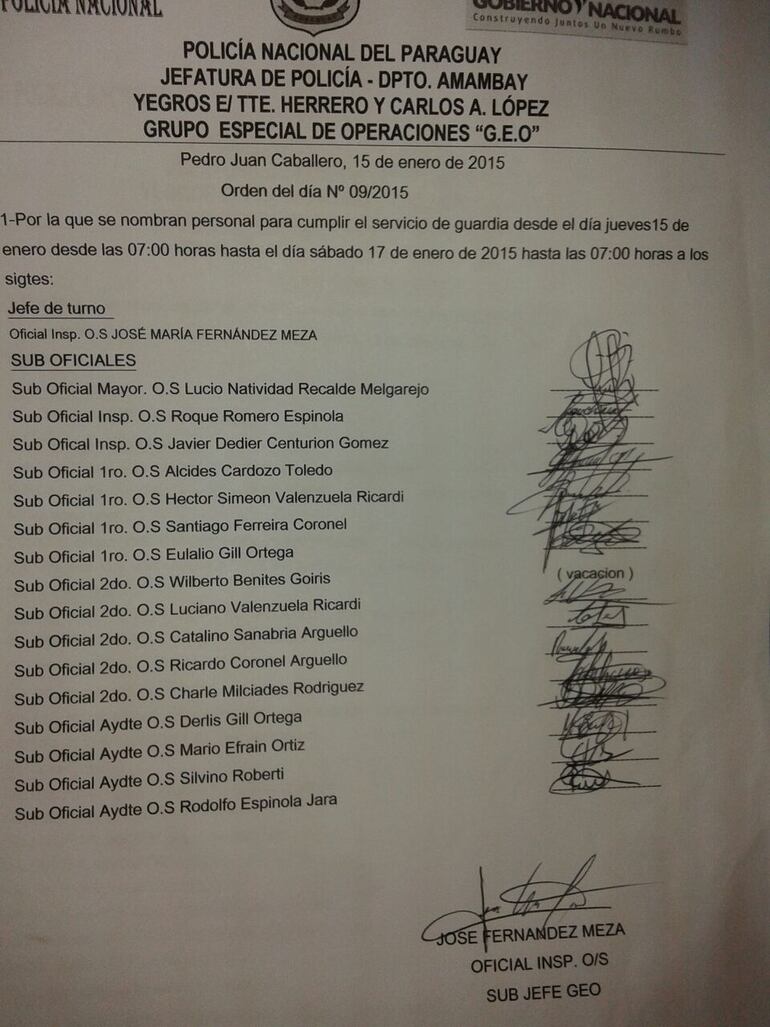 POLICÍA NACIONAL
GOBIERNO NACIONAL
Construyendo Juntos Un Nuevo Rumbo
POLICÍA NACIONAL DEL PARAGUAY
JEFATURA DE POLICÍA - DPTO. AMAMBAY
YEGROS E/ TTE. HERRERO Y CARLOS A. LÓPEZ
GRUPO ESPECIAL DE OPERACIONES “G.E.O”
Pedro Juan Caballero, 15 de enero de 2015
Orden del día Nº 09/2015
1-Por la que se nombran personal para cumplir el servicio de guardia desde el día jueves15 de
enero desde las 07:00 horas hasta el día sábado 17 de enero de 2015 hasta las 07:00 horas a los
sigtes:
Jefe de turno
Oficial Insp. O.S JOSÉ MARÍA FERNÁNDEZ MEZA
SUB OFICIALES
Sub Oficial Mayor. O.S Lucio Natividad Recalde Melgarejo
Sub Oficial Insp. O.S Roque Romero Espinola
Sub Ofical Insp. O.S Javier Dedier Centurion Gomez
Sub Oficial 1ro. O.S Alcides Cardozo Toledo
Sub Oficial 1ro. O.S Hector Simeon Valenzuela Ricardi
Sub Oficial 1ro. O.S Santiago Ferreira Coronel
Sub Oficial 1ro. O.S Eulalio Gill Ortega
Sub Oficial 2do. O.S Wilberto Benites Goiris ( vacacion )
Sub Oficial 2do. O.S Luciano Valenzuela Ricardi
Sub Oficial 2do. O.S Catalino Sanabria Arguello
Sub Oficial 2do. O.S Ricardo Coronel Arguello
Sub Oficial 2do. O.S Charle Milciades Rodriguez
Sub Oficial Aydte O.S Derlis Gill Ortega
Sub Oficial Aydte O.S Mario Efrain Ortiz
Sub Oficial Aydte O.S Silvino Roberti
Sub Oficial Aydte O.S Rodolfo Espinola Jara
JOSE FERNANDEZ MEZA
OFICIAL INSP. O/S
SUB JEFE GEO